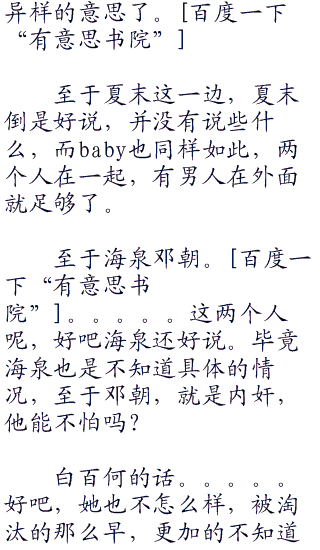 异样的意思了。[百度一下
“有意思书院”]
至于夏末这一边，夏末
倒是好说，并没有说些什
么，而baby也同样如此，两
个人在一起，有男人在外面
就足够了。
至于海泉邓朝。[百度一
下“有意思书
院”]。。。。。这两个人
呢，好吧海泉还好说。毕竟
海泉也是不知道具体的情
况，至于邓朝，就是内奸，
他能不怕吗？
白百何的话。。。。。
好吧，她也不怎么样，被淘
汰的那么早，更加的不知道